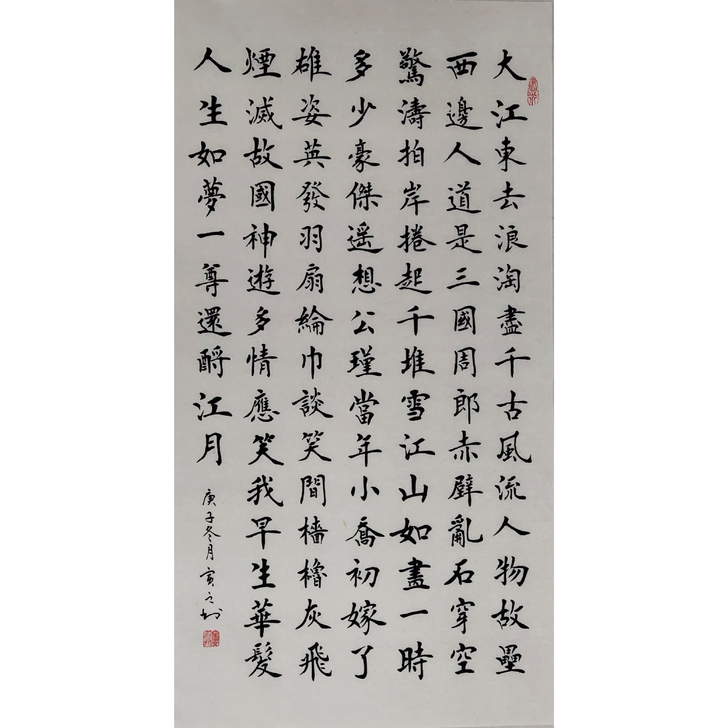 大江東去浪淘盡千古風流人物故壘
西邊人道是三國周郎赤壁亂石穿空
驚濤拍岸捲起千堆雪江山如畫一時
多少豪傑遥想公瑾當年小喬初嫁了
雄姿英發羽扇綸巾談笑間檣櫓灰飛
煙滅故國神遊多情應笑我早生華髮
人生如夢一尊還酹江月
庚子冬月寅之